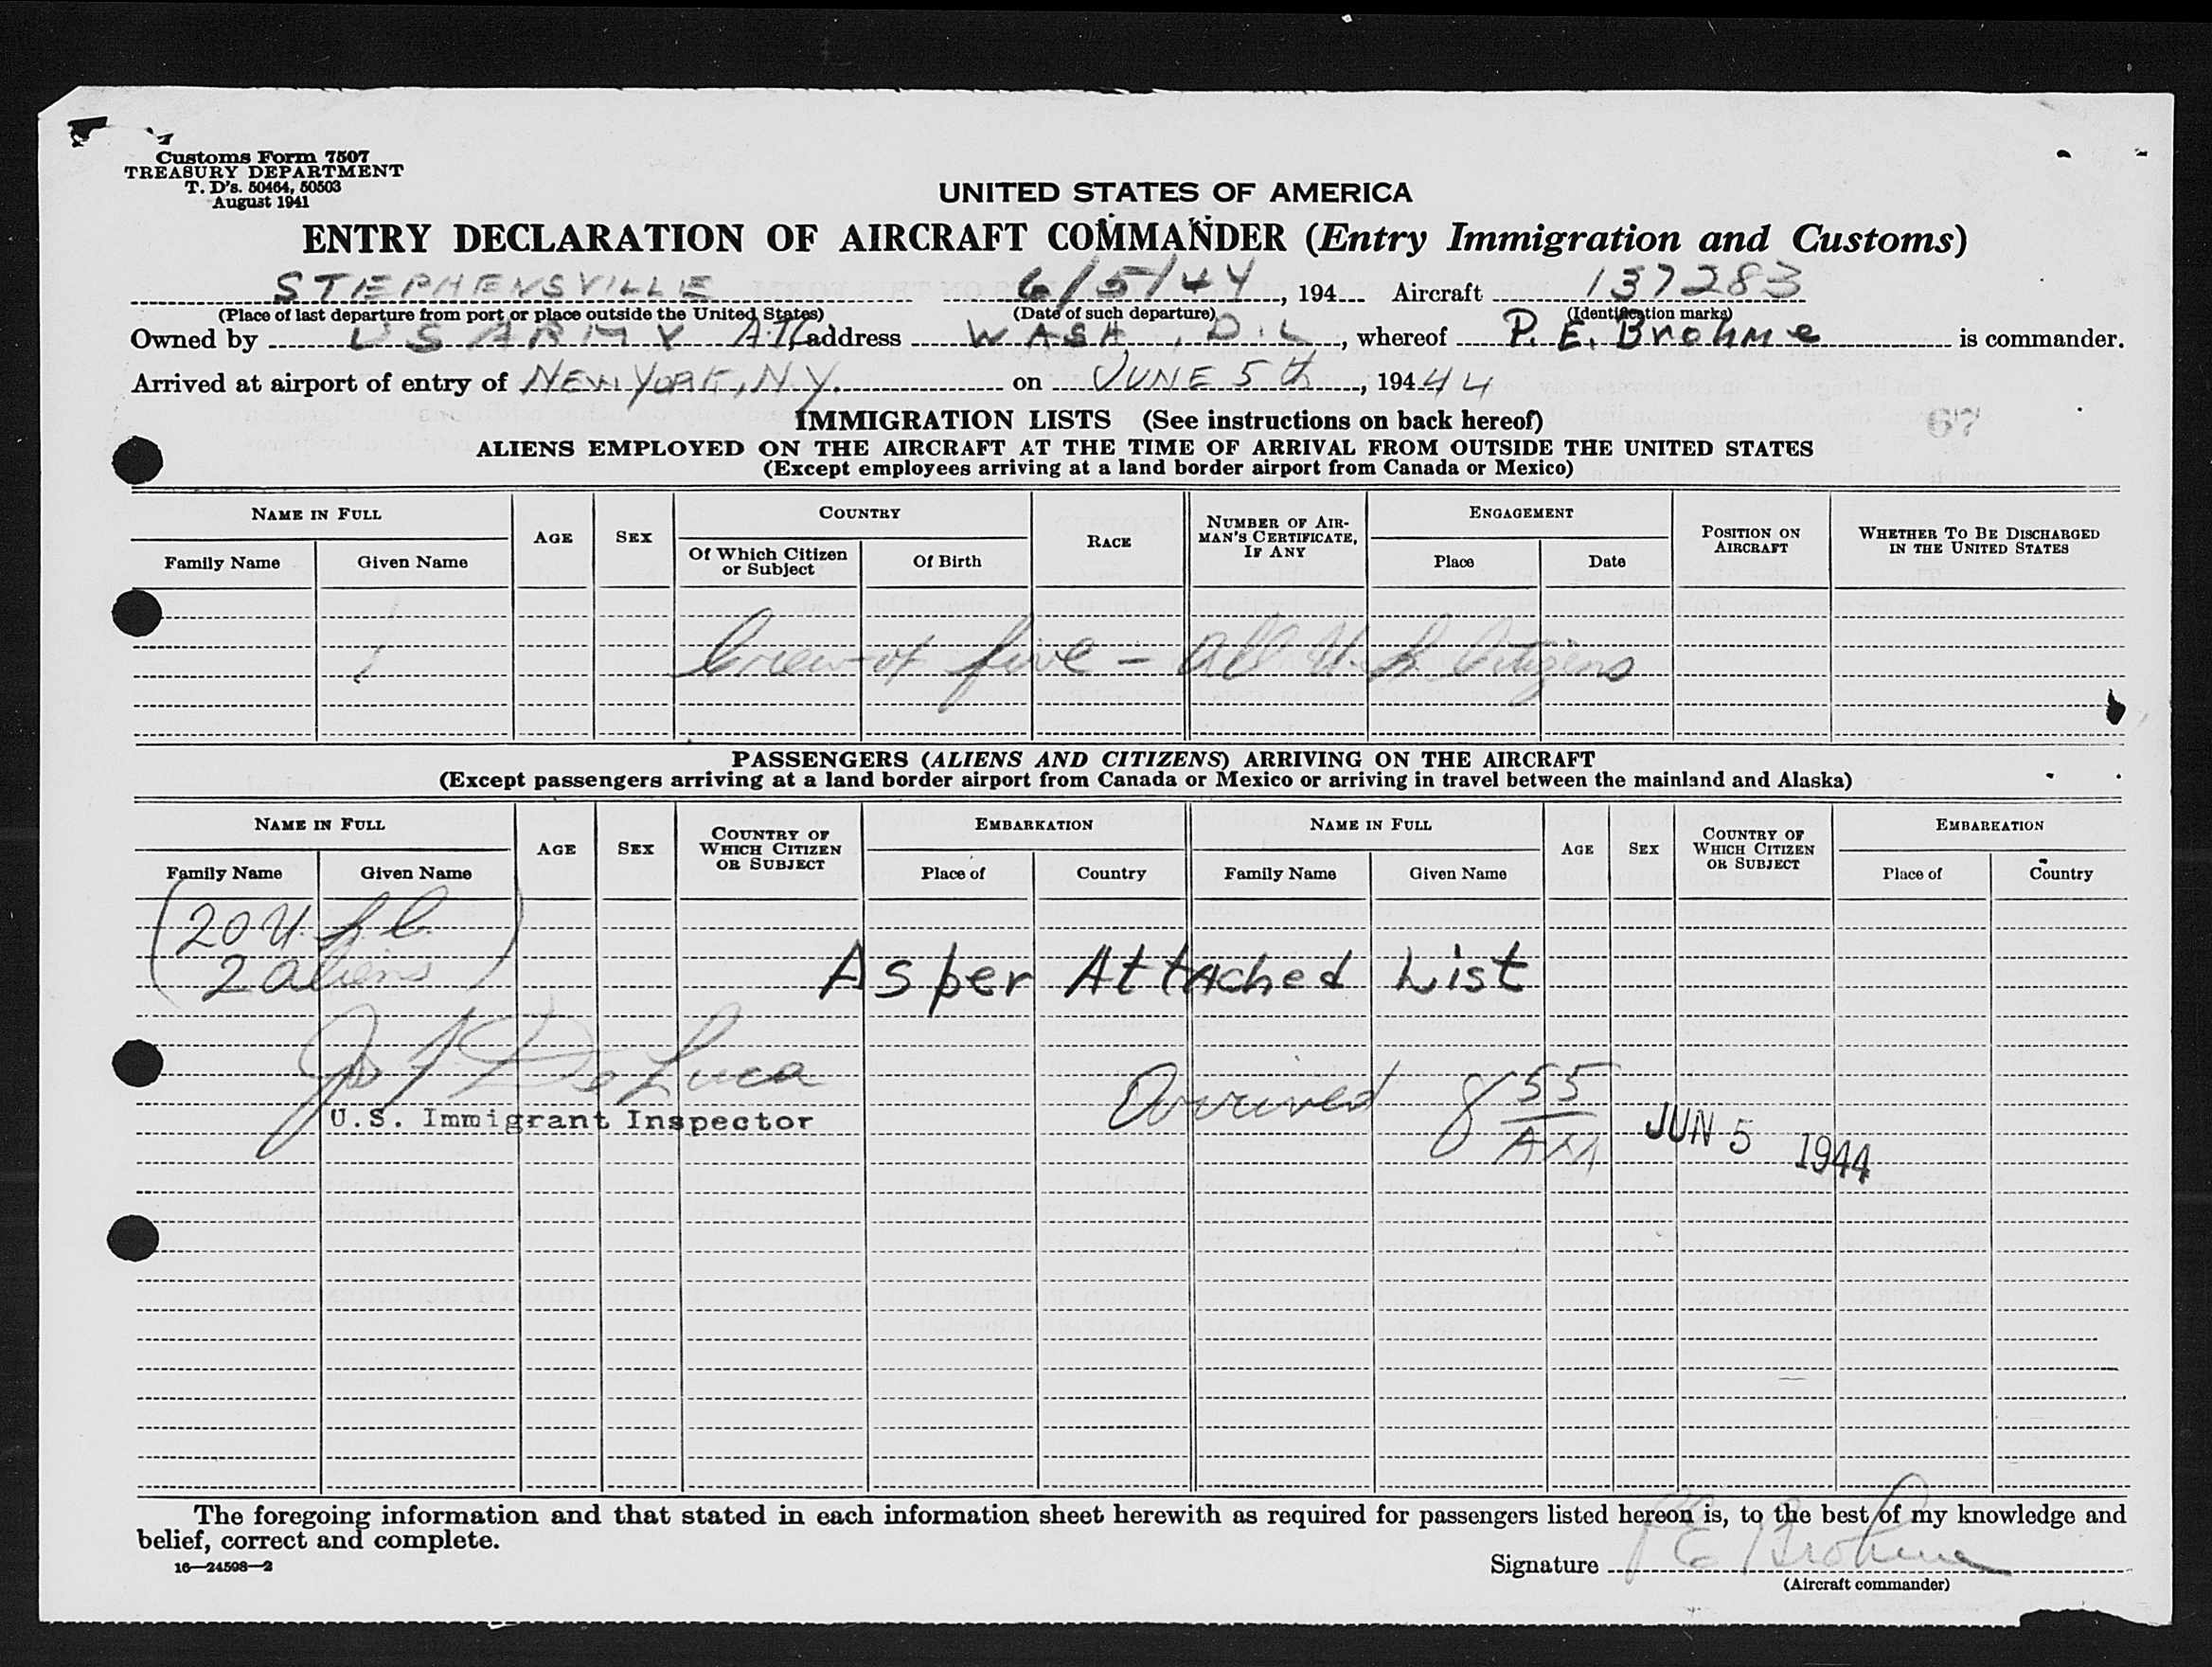 Customs Form 7507
TREASURY DEPARTMENT
T. D's. 50464, 50503
August 1941
UNITED STATES OF AMERICA
ENTRY DECLARATION OF AIRCRAFT COMMANDER (Entry Immigration and Customs)
STEPHENSVILLE 6/5/44, 194 Aircraft 137283
(Place of last departure from port or place outside the United States) (Date of such departure) (Identification marks)
Owned by US ARMY address WASH, D.C, whereof P. E. Brohme is commander.
Arrived at airport of entry of NEW YORK, N.Y. on JUNE 5th, 194 44
IMMIGRATION LISTS (See instructions on back hereof)
67
ALIENS EMPLOYED ON THE AIRCRAFT AT THE TIME OF ARRIVAL FROM OUTSIDE THE UNITED STATES
(Except employees arriving at a land border airport from Canada or Mexico)
NAME IN FULL AGE SEX COUNTRY RACE NUMBER OF AIR-MAN'S CERTIFICATE, IF ANY ENGAGEMENT POSITION ON AIRCRAFT WHETHER TO BE DISCHARGED IN THE UNITED STATES
Family Name Given Name Of Which Citizen or Subject Of Birth Place Date
Crew of five - all U.S. Citizens
PASSENGERS (ALIENS AND CITIZENS) ARRIVING ON THE AIRCRAFT
(Except passengers arriving at a land border airport from Canada or Mexico or arriving in travel between the mainland and Alaska)
NAME IN FULL AGE SEX COUNTRY OF WHICH CITIZEN OR SUBJECT EMBARKATION NAME IN FULL AGE SEX COUNTRY OF WHICH CITIZEN OR SUBJECT EMBARKATION
Family Name Given Name Place of Country Family Name Given Name Place of Country
(20 U.S.C.
2 aliens)
As per Attached List
Jos F De Luca
U.S. Immigrant Inspector
Arrived 8 55 AM
JUN 5 1944
The foregoing information and that stated in each information sheet herewith as required for passengers listed hereon is, to the best of my knowledge and
belief, correct and complete.
16—24598—2
Signature P E Brohme
(Aircraft commander)